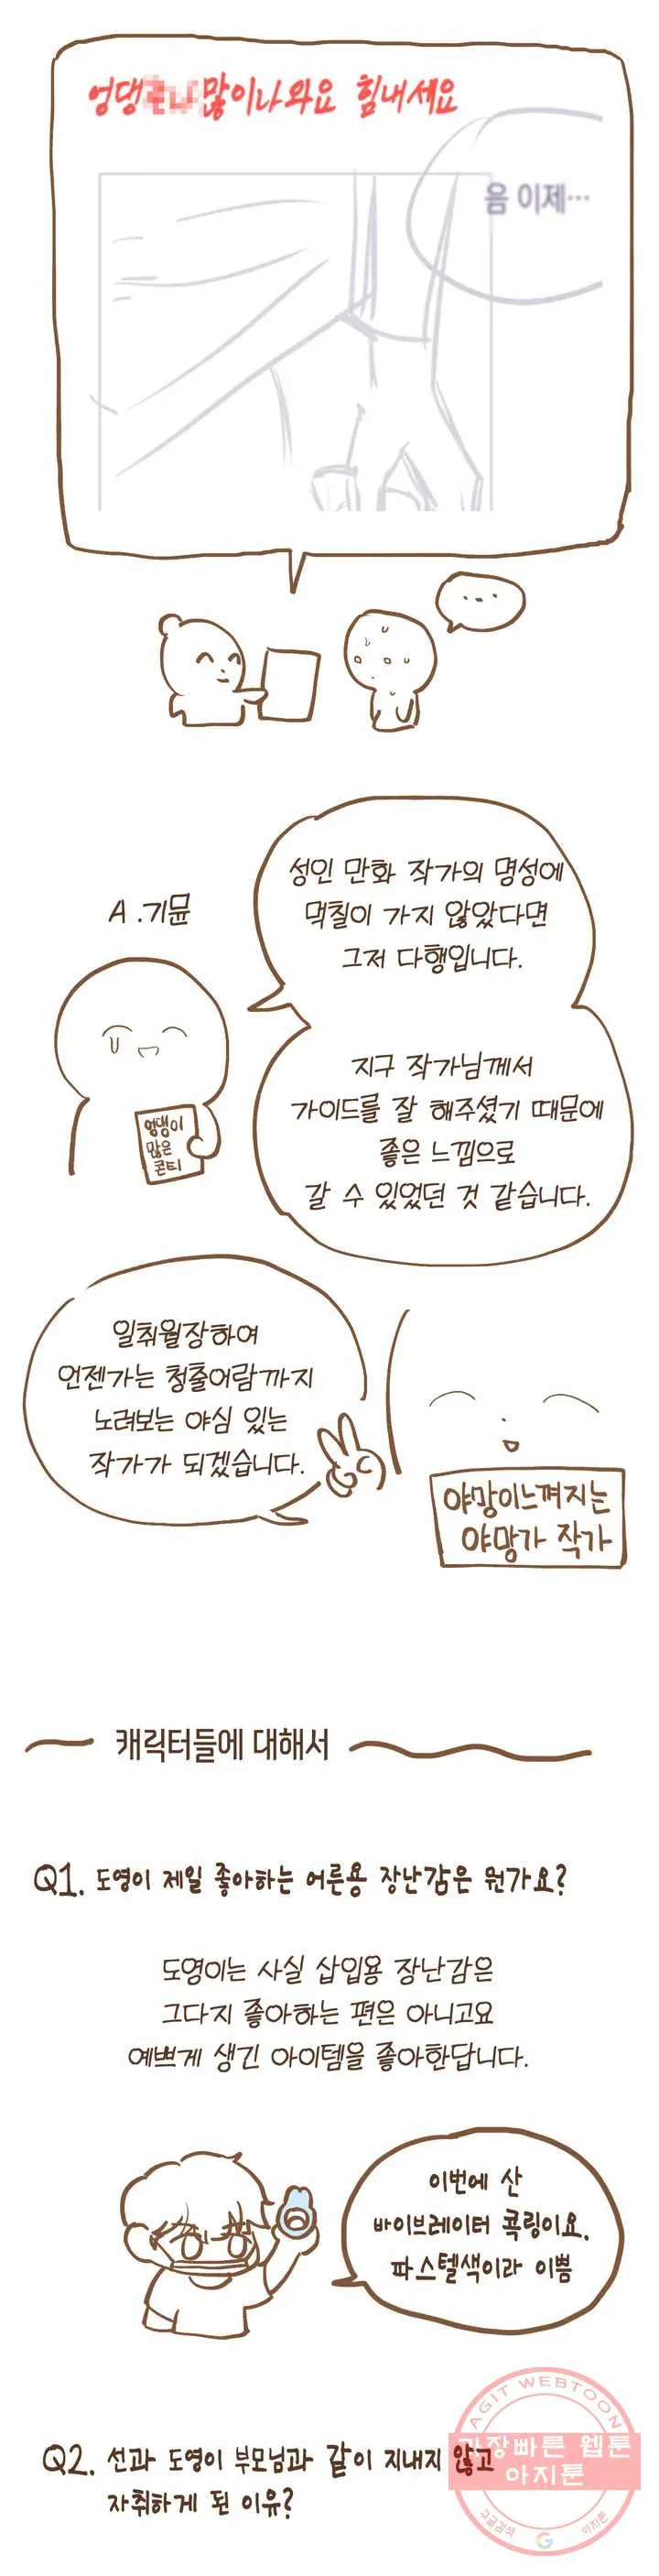 엉댕 많이나와요 힘내세요
음 이제…
...
A.기뮨
성인 만화 작가의 명성에
먹칠이 가지 않았다면
그저 다행입니다.
엉댕이
많은
콘티
지구 작가님께서
가이드를 잘 해주셨기 때문에
좋은 느낌으로
갈 수 있었던 것 같습니다.
일취월장하여
언젠가는 청출어람까지
노려보는 야심 있는
작가가 되겠습니다.
야망이느껴지는
야망가 작가
캐릭터들에 대해서
Q1. 도영이 제일 좋아하는 어른용 장난감은 뭔가요?
도영이는 사실 삽입용 장난감은
그다지 좋아하는 편은 아니고요
예쁘게 생긴 아이템을 좋아한답니다.
이번에 산
바이브레이터 콕링이요.
파스텔색이라 이쁨
Q2. 선과 도영이 부모님과 같이 지내지 않고
자취하게 된 이유?
AGIT WEBTOON
가장빠른 웹툰
아지툰
구글검색
G
아지툰